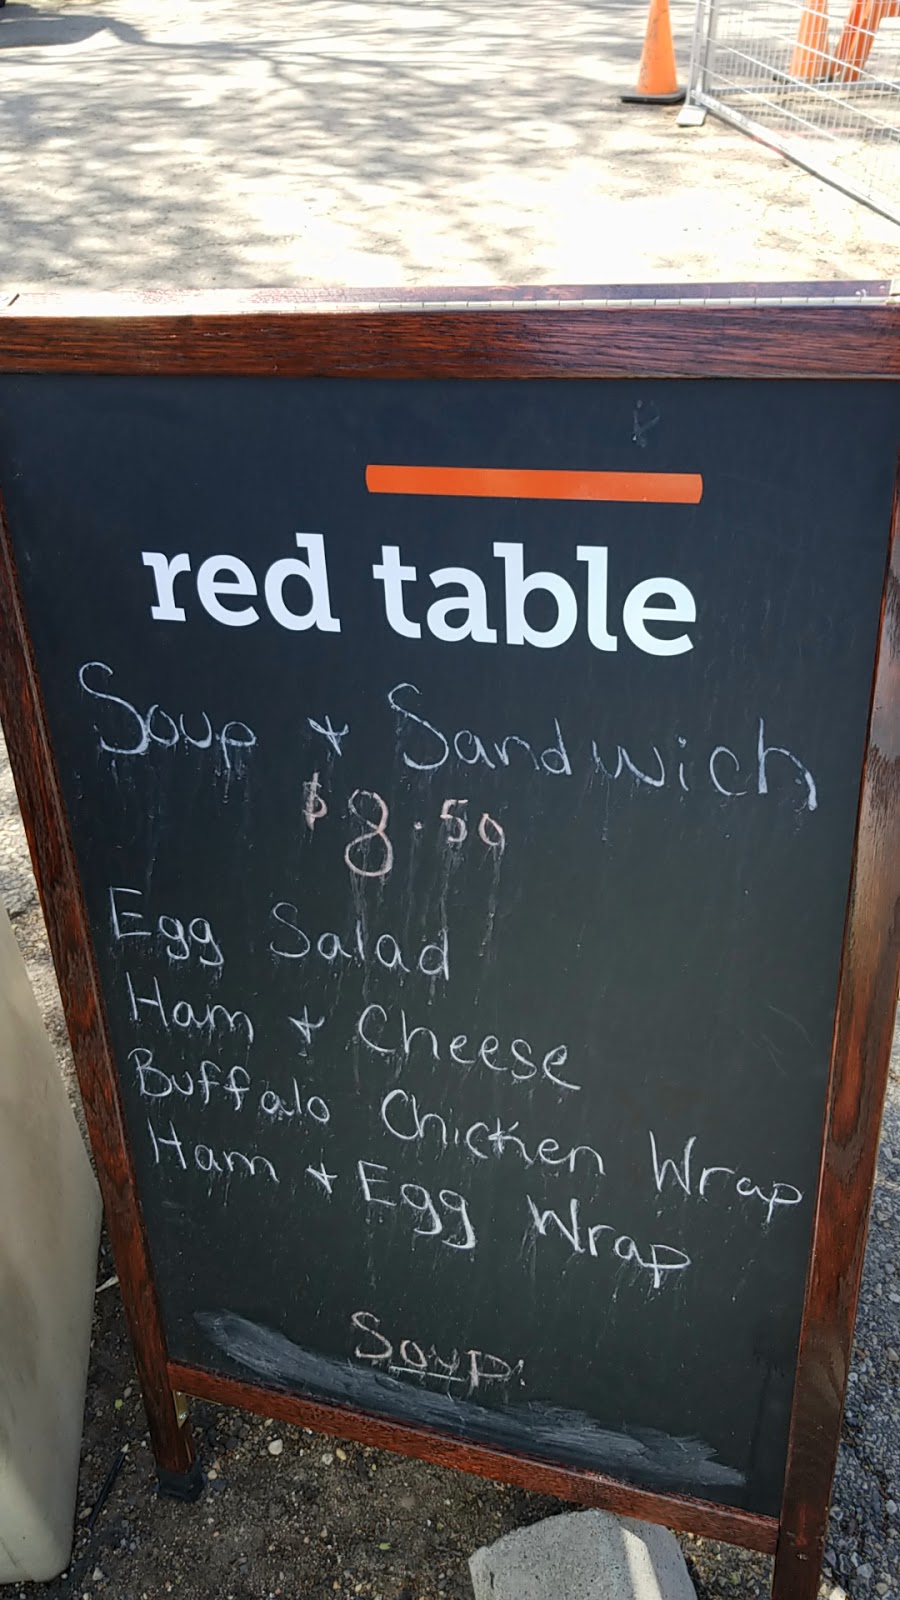 red table
Soup + Sandwich
$8.50
Egg Salad
Ham + Cheese
Buffalo Chicken Wrap
Ham + Egg Wrap
Soup: